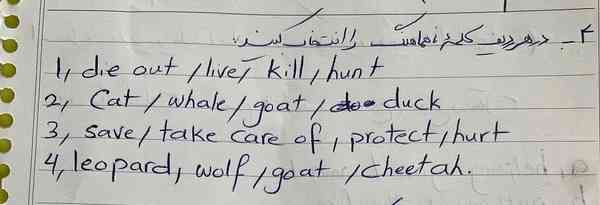 ۴- در هر ردیف کلمهٔ ناهماهنگ را انتخاب کنید.
1, die out / live / kill, hunt
2, Cat / whale / goat / duck
3, save / take care of, protect, hurt
4, leopard, wolf / goat / cheetah.